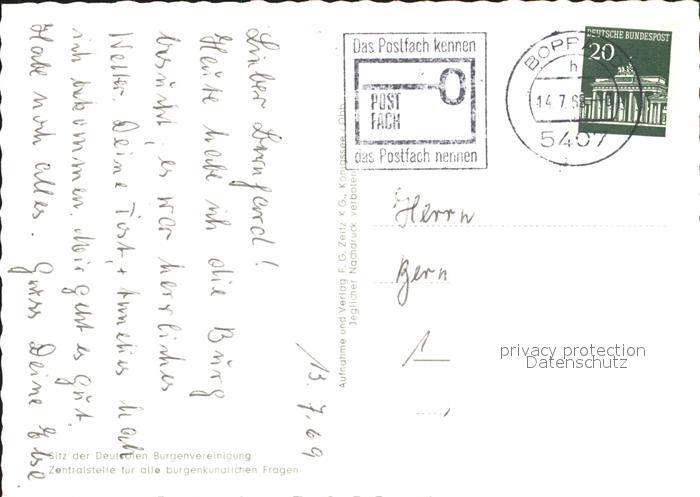 Lieber Bernhard!
Heute habe ich die Burg
besucht, es war herrliches
Wetter. Deine Post
ich bekommen. Mir geht es gut.
Habe noch alles. Gruss Deine Else
13.7.69
Sitz der Deutschen Burgenvereinigung
Zentralstelle für alle burgenkundlichen Fragen
Aufnahme und Verlag F. G. Zeitz KG., Königssee / Obb.
Jeglicher Nachdruck verboten
Das Postfach kennen
POST
FACH
das Postfach nennen
BOPP
h
14.7.69
5407
DEUTSCHE BUNDESPOST
20
Herrn
Bern
privacy protection
Datenschutz